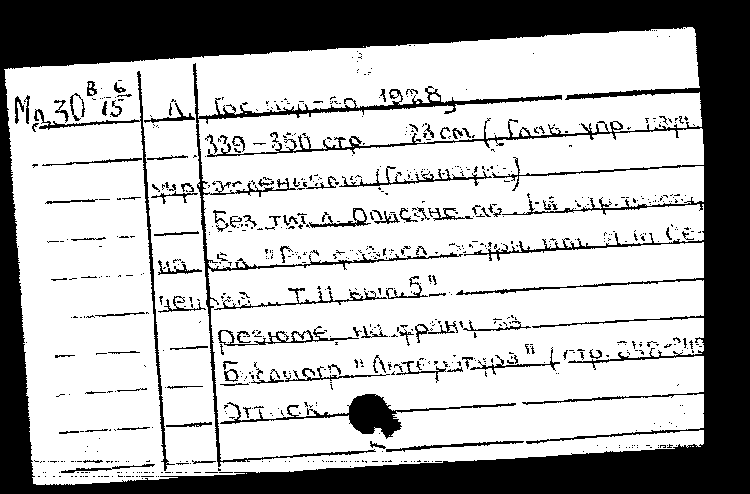 Мл.30 В 6/15 Л. Гос. изд-во, 1928,
339-350 стр 23 см (Глав. упр. науч.
учреждениями (Главнаука)
Без тит. л. Описано по 1-й стр. текста,
на обл. "Рус физиол. журн. им. И. М Се-
ченова .. Т. 11, вып. 5"
резюме на франц яз
Библиогр "Литература" (стр. 348-349
Оттиск.